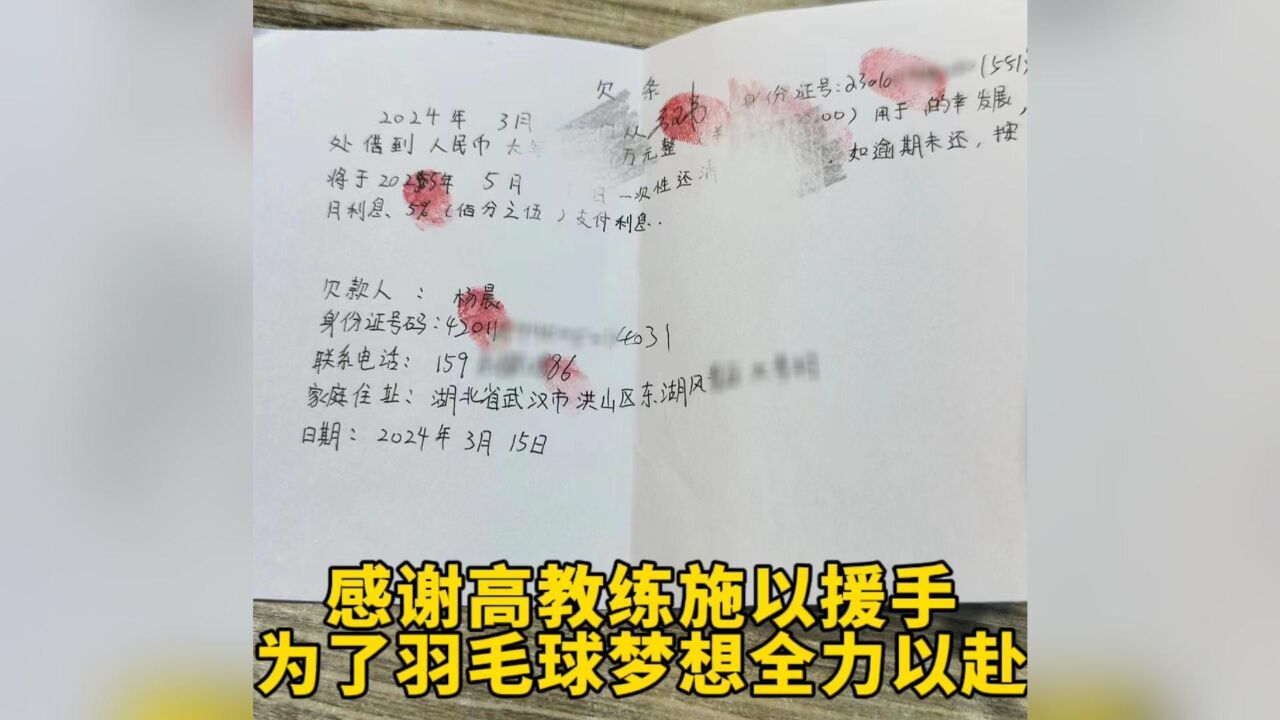 欠条
2024年 3月 从 身份证号:2306 (551
处借到人民币大 万元整 00)用于 的幸发展,
将于202 年 5月 日一次性还清 . 如逾期未还,按
月利息、5%(佰分之伍)支付利息.
欠款人 : 杨晨
身份证号码:42011 4031
联系电话: 159 86
家庭住址: 湖北省武汉市洪山区东湖风
日期: 2024年 3月 15日
感谢高教练施以援手
为了羽毛球梦想全力以赴